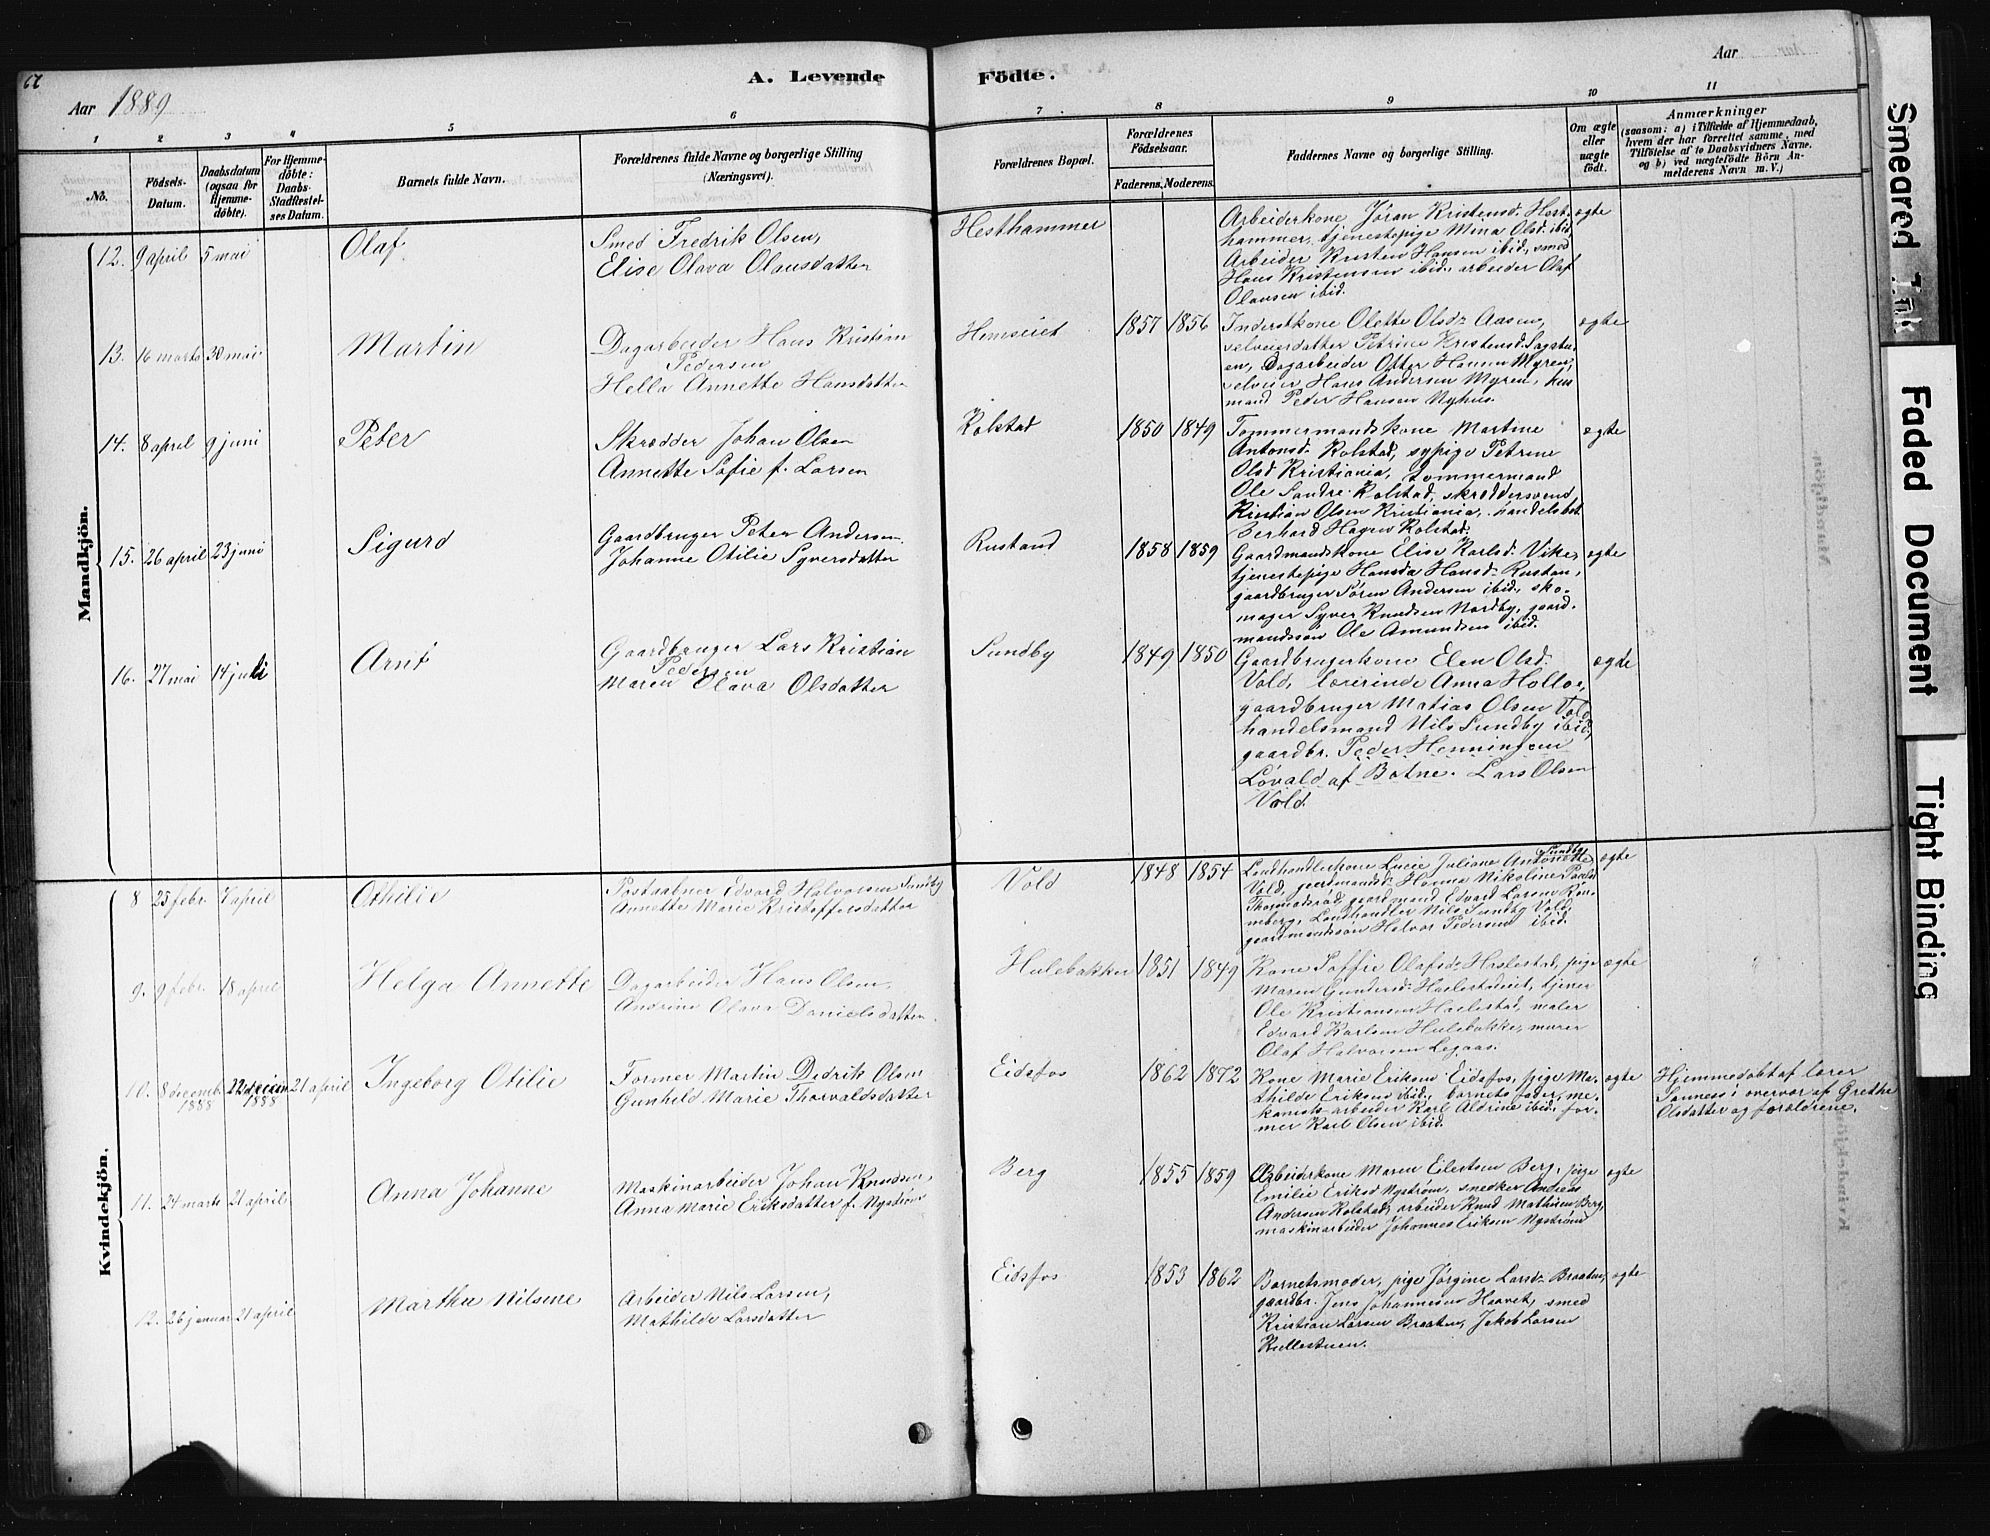 62
A. Levende
Födte.
Aar
Aar 1889
1 2 3 4 5 6 7 8 9 10 11
No.
Födsels-
Datum.
Daabsdatum
(ogsaa for
Hjemme-
döbte).
For Hjemme-
döbte:
Daabs-
Stadfæstel-
ses Datum.
Barnets fulde Navn.
Forældrenes fulde Navne og borgerlige Stilling
(Næringsvei).
Forældrenes Bopæl.
Forældrenes
Födselsaar.
Faderens. Moderens.
Faddernes Navne og borgerlige Stilling.
Om ægte
eller
uægte
födt.
Anmærkninger
(saasom: a) i Tilfælde af Hjemmedaab,
hvem der har forrettet samme, med
Tilföielse af to Daabsvidners Navne.
og b) ved uægtefödte Börn An-
melderens Navn m. V.)
Mandkjön.
12. 9 april 5 mai Olaf
Smed Fredrik Olsen,
Elise Olava Olausdatter
Hesthammer
Arbeiderkone Jøran Kristensd. Hest-
hammer, tjenestepige Mina Olsd. ibid,
Arbeider Kristen Hansen ibid, smed
Hans Kristensen ibid, arbeider Olaf
Olausen ibid.
ægte
13. 16 marts 30 mai Martin
Dagarbeider Hans Kristian
Pedersen
Hella Annette Hansdatter
Hemseiet
1857 1856
Inderstkone Olette Olsd. Aasen,
selveierdatter Petrine Kristensd. Sagstu-
en, Dagarbeider Otter Hansen Myren,
selveier Hans Andersen Myren, hus
mand Peder Hansen Nyhus.
ægte
14. 8 april 9 juni Peter
Skrædder Johan Olsen
Annette Sofie f. Larsen
Kolstad
1850 1849
Tømmermandskone Martine
Antonsd. Kolstad, sypige Petrine
Olsd Kristiania, Tømmermand
Ole Sandre Kolstad, skræddersvend
Kristian Olsen Kristiania, handelsbet.
Gerhard Hagen Kolstad.
ægte
15. 26 april 23 juni Sigurd
Gaardbruger Peter Andersen
Johanne Otilie Syversdatter
Rustand
1858 1859
Gaardmandskone Elise Karlsd. Vike,
tjenestepige Hansda Hansd. Rustan,
gaardbruger Søren Andersen ibid, sko-
mager Syver Knudsen Nordby, gaard-
mandssøn Ole Amundsen ibid.
ægte
16. 27 mai 14 juli Arnt
Gaardbruger Lars Kristian
Pedersen
Maren Olava Olsdatter
Sundby
1849 1850
Gaardbrugerkone Elen Olsd.
Vold, lærerinde Anna Holloe,
gaardbruger Matias Olsen Vold
handelsmand Nils Sundby ibid,
gaardbr. Peder Henningsen
Løvald af Botne. Lars Olsen
Vold.
ægte
Kvindekjön.
8 25 febr. 7 april Othilie
Postaabner Edvard Halvorsen Sundby
Annette Marie Kristoffersdatter
Vold
1848 1854
Sundby
Landhandlerkone Lucie Juliane Antonette
Vold, gaardmandsd. Hanna Nikoline Pauls
gaardmand Edvard Larsen Røn-
neberg, Landhandler Nils Sundby Vold,
gaardmandssøn Halvor Pedersen ibid.
ægte
9. 9 febr. 18 april Helga Annette
Dagarbeider Hans Olsen,
Andrine Olava Danielsdatter.
Hulebakken
1851 1849
Kone Soffie Olafsd. Haslestad, pige
Maren Gundersd. Haslestadeiet, tjener
Ole Kristiansen Haslestad, maler
Edvard Karlsen Hulebakke, murer
Olaf Halvorsen Legaas.
ægte
10. 8 decemb. 1888 22 decem 1888 21 april Ingeborg Otilie
Former Martin Didrik Olsen
Gunhild Marie Thorvaldsdatter
Eidsfos
1862 1872
Kone Marie Eriksen Eidsfos, pige Ma-
thilde Eriksen ibid, barnets fader, me-
kanisk arbeider Karl Aldrine ibid, for-
mer Karl Olsen ibid.
ægte
Hjemmedøbt af lærer
Tønnes i overvær af Grethe
Olsdatter og forældrene.
11. 24 marts 21 april Anna Johanne
Maskinarbeider Johan Knudsen,
Anna Marie Eriksdatter f. Nystrøm
Berg
1855 1859
Arbeiderkone Maren Eilertsen Berg, pige
Emilie Eriksd Nystrøm, snedker Andreas
Andersen Kolstad, arbeider Knud Mathisen Berg,
maskinarbeider Johannes Eriksen Nystrøm
ægte
12. 26 januar 21 april Martha Nilsine
Arbeider Nils Larsen,
Mathilde Larsdatter
Eidsfos
1853 1862
Barnetsmoder, pige Jørgine Larsd. Braaten,
gaardbr. Jens Johannesen Haavet, smed
Kristian Larsen Braaten, Jakob Larsen
Kullestuen.
ægte
Smeared Ink
Faded Document
Tight Binding